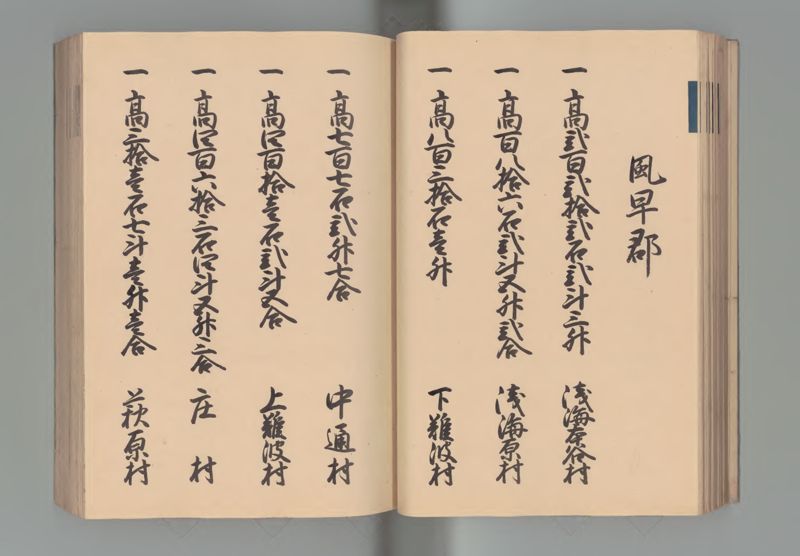 風早郡
一 高弐百弐拾弐石弐斗三升 浅海本谷村
一 高百八拾六石弐斗五升弐合 浅海原村
一 高八百三拾石壱升 下難波村
一 高七百七石弐升七合 中通村
一 高四百拾壱石弐斗五合 上難波村
一 高四百六拾三石四斗五升三合 庄村
一 高三拾壱石七斗壱升壱合 萩原村